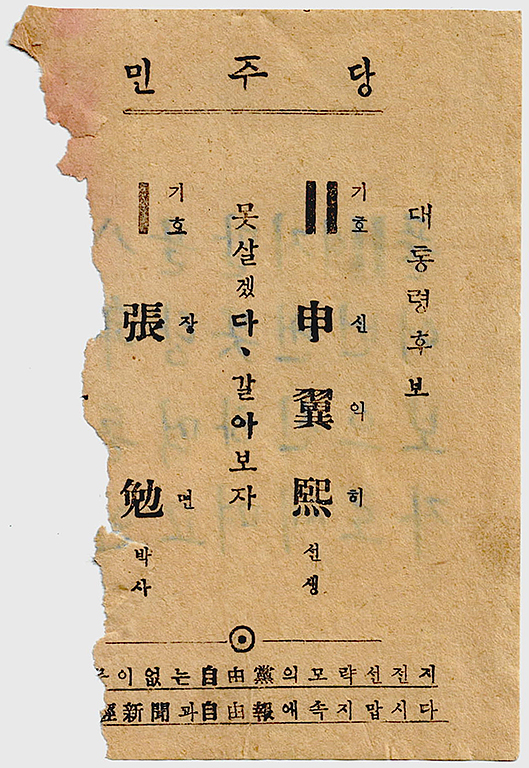 민주당
대통령후보
기호
신익히
申翼熙 선생
못살겠다、갈아보자
기호
장면
張勉 박사
이없는自由黨의모략선전지
新聞과自由報에속지맙시다